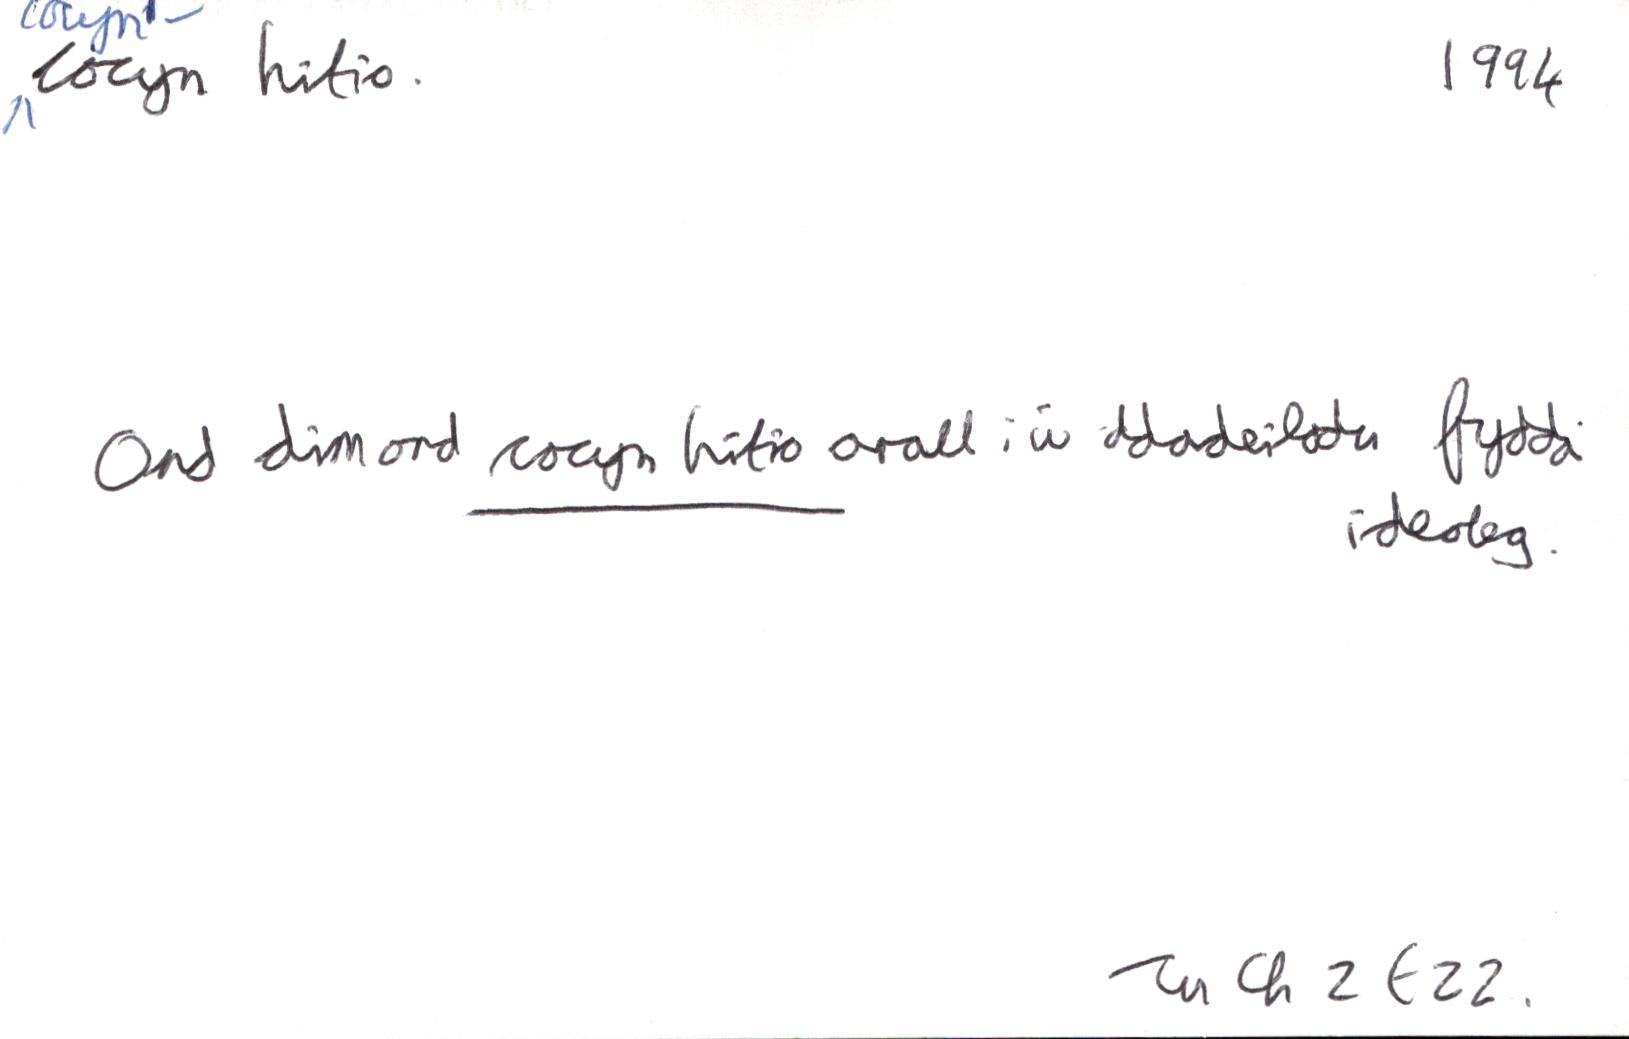 cocyn¹ –
cocyn hitio. 1994
Ond dim ond cocyn hitio arall i'w ddadeiladu fydda
ideoleg.
Tu Ch 2 E22.